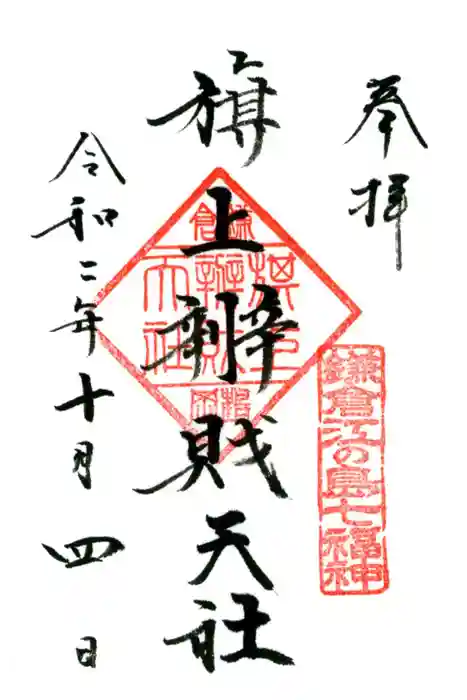 奉拝
旗上辨財天社
令和二年十月四日
鎌倉江の島七福神
鎌倉